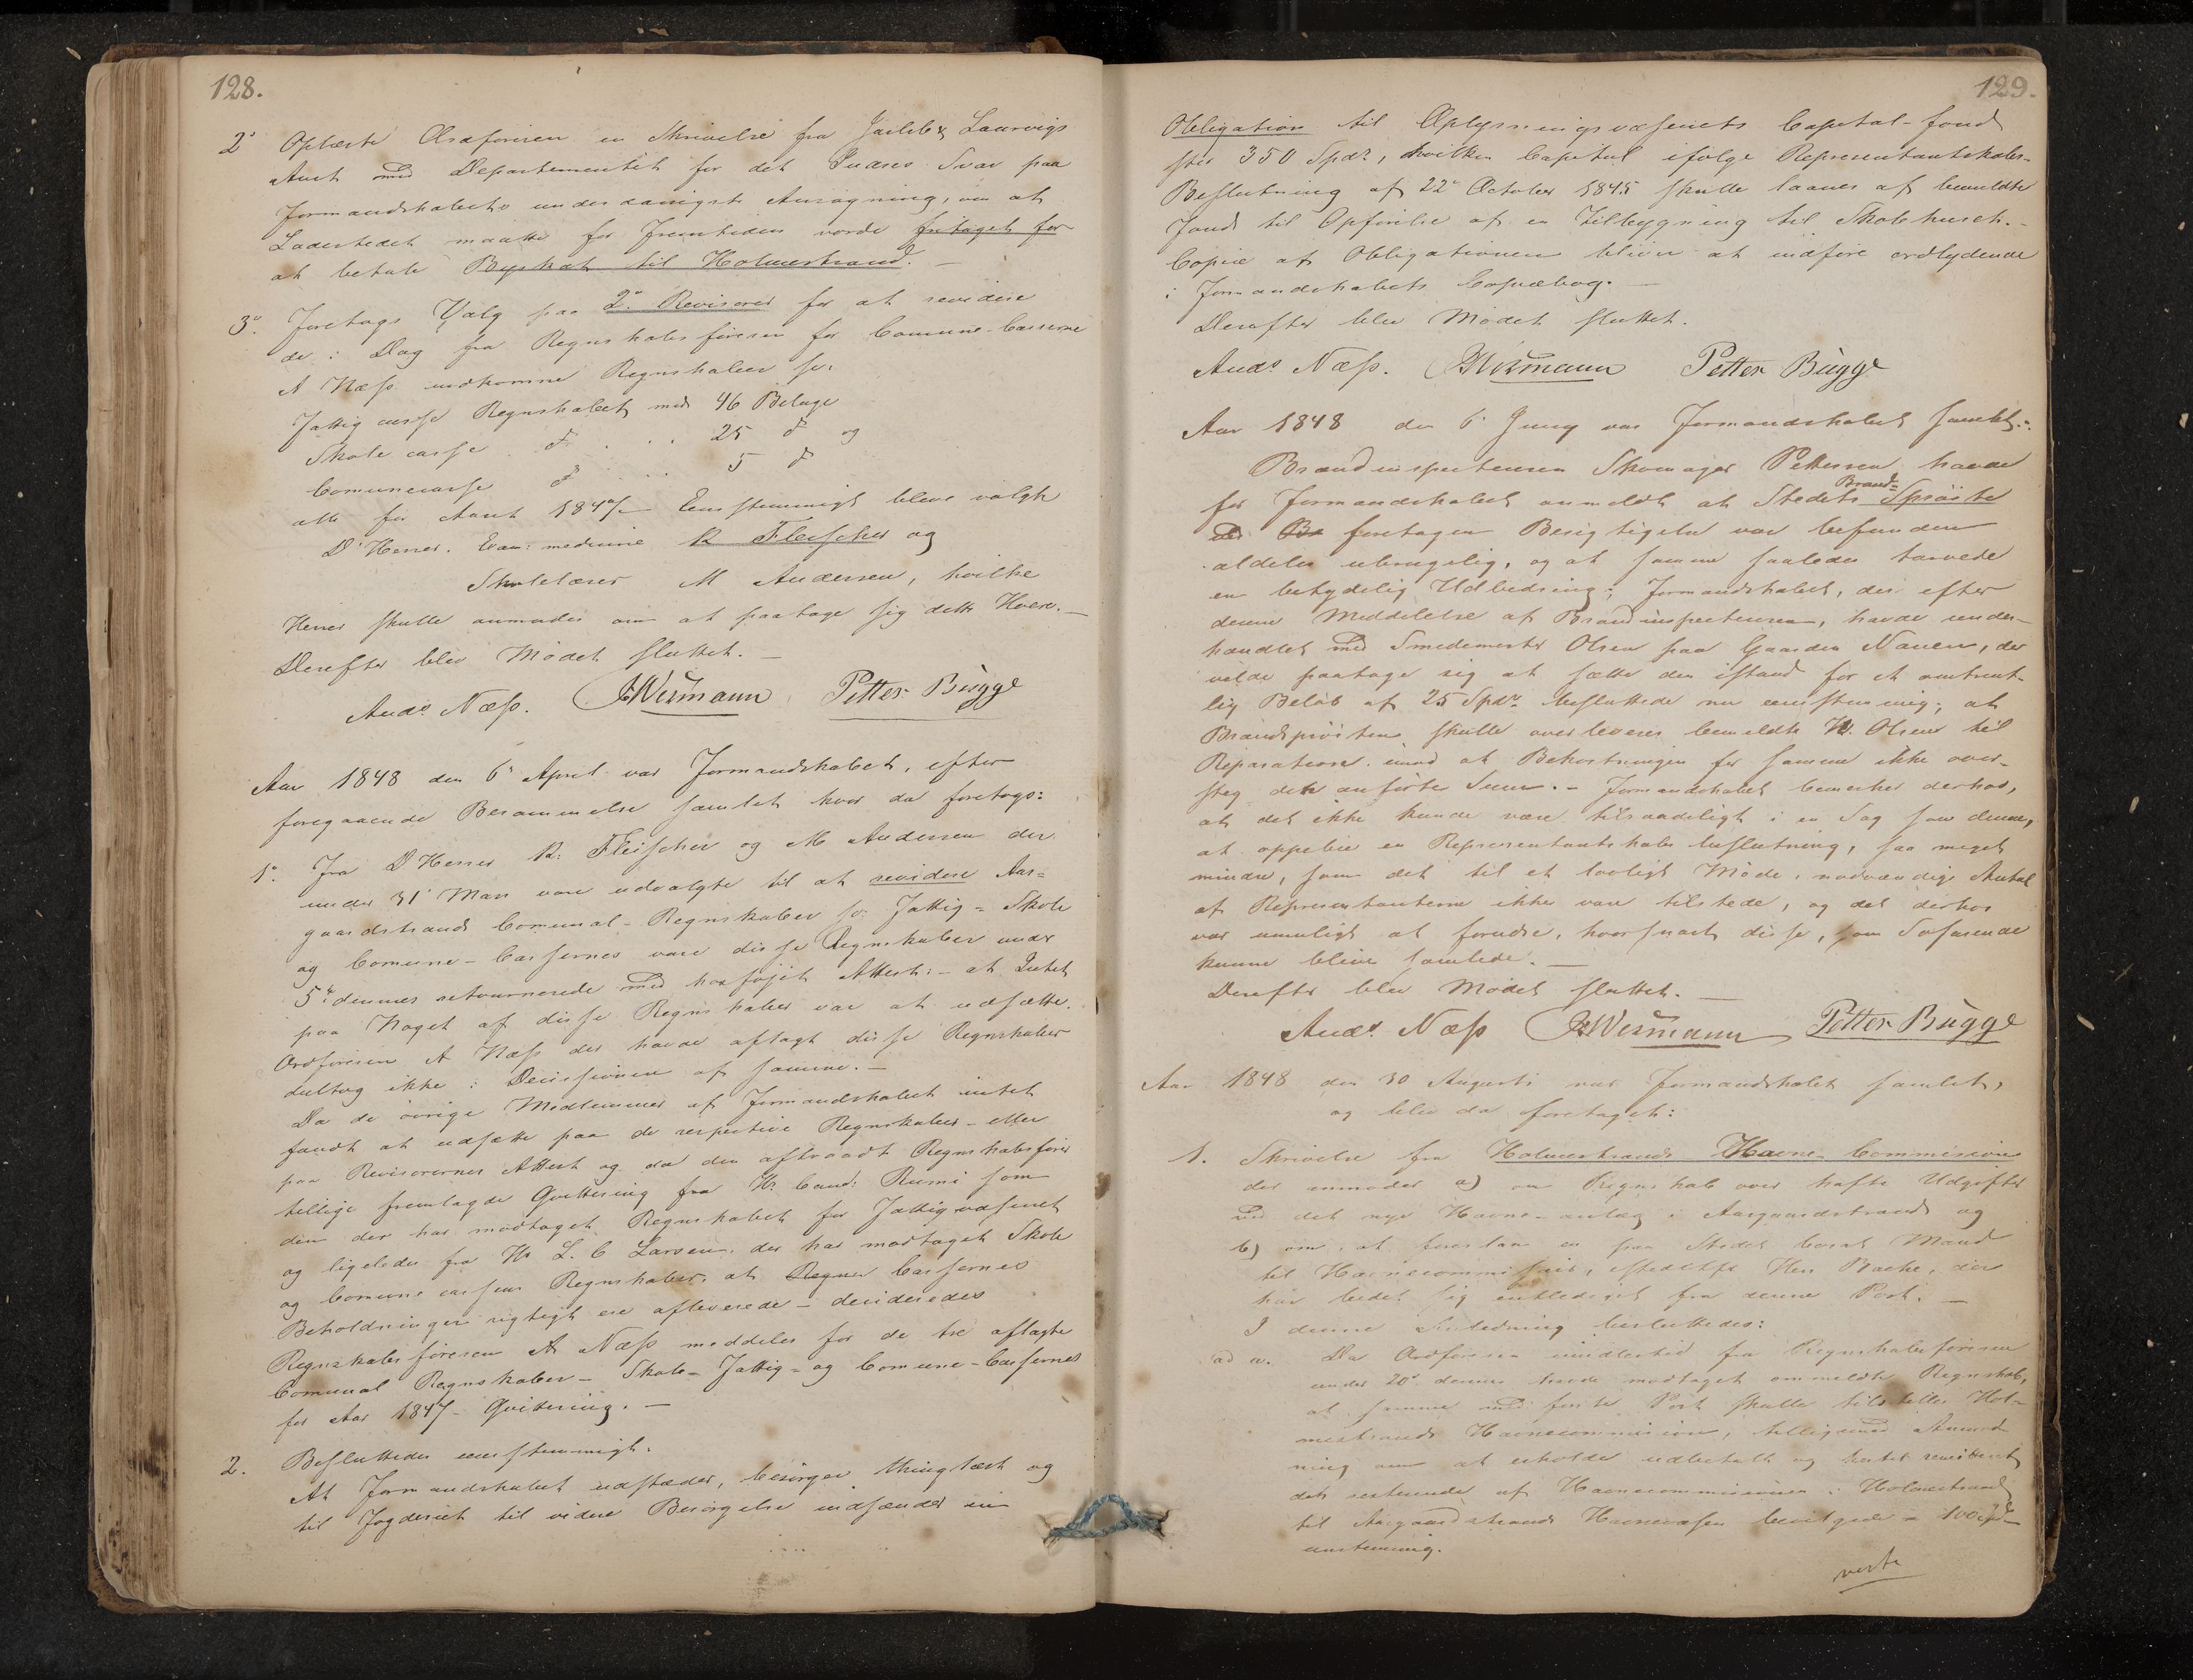 128.
2° Oplæste Ordføreren en Skrivelse fra Jarlsb: & Laurvigs
Amt med Departementet for det Indres Svar paa
Formandskabets underdanigste Ansøgning, om at
Ladestedet maatte for Fremtiden vorde fritaget for
at betale Byskat til Holmestrand. —
3°. Foretoges Valg paa 2de Revisorer for at revidere
de i Dag fra Regnskabsføreren for Comune-Casserne
A Næss indkomne Regnskaber se:
Fattig casse Regnskabet med 46 Bilage
Skole casse do . . . 25 do og
Comunecasse do . . . 5 do
alt for Aaret 1847 — Eenstemmigt bleve valgte
D'Herrer. Exam: medicine R Fleischer og
Skolelærer M Andersen, hvilke
Herrer skulle anmodes om at paatage sig dette Hverv. —
Derefter blev Mødet sluttet. —
Ands Næss. Wermann Petter Bugge
Aar 1848 den 6' April var Formandskabet, efter
foregaaende Berammelse samlet hvor da foretogs:
1°. Fra D'Herrer R: Fleischer og M Andersen der
under 31' Mars vare udvalgte til at revidere Aas=
gaardstrands Comunal-Regnskaber for Fattig = Skole
og Comune-Cassernes vare disse Regnskaber under
5te dennes retournerede med hosføjet Attest: — at Intet
paa Noget af disse Regnskaber var at udsætte.
Ordføreren A Næss der havde aflagt disse Regnskaber
deltog ikke i Decissionen af samme. —
Da de øvrige Medlemmer af Formandskabet intet
fandt at udsætte paa de respective Regnskaber — eller
paa Revisorernes Attest og da den aftraadt Regnskabsfører
tillige fremlagde Qvittering fra Hr. Cand: Rumi som
den der har modtaget Regnskabet for Fattigvæsenet
og ligeledes fra Hr L. C Larsen, der har modtaget Skole
og Comune cassens Regnskaber, at Cassernes
Beholdninger rigtigt ere afleverede — decideredes
Regnskabsføreren A Næss meddeles for de tre aflagte
Comunal Regnskaber — Skole- Fattig = og Comune-Cassernes
for Aar 1847 — Qvitering. —
2. Besluttedes eenstemmigt:
At Formandskabet udstæder, besørger thinglæst og
til Fogderiet til videre Besørgelse indsænder en
129.
Obligation til Oplysningsvæsenets Capital-fond
stor 350 Spdr, hvilken Capital ifølge Representantskabs-
Beslutning af 22de October 1845 skulle laanes af bemeldte
Fond til Opførelse af en Tilbygning til Skolehuset. —
Copie af Obligationen bliver at indføre ordlydende
i Formandskabets Copiebog. —
Derefter blev Mødet sluttet.
Ands Næss. Wermann Petter Bugge
Aar 1848 den 6' Juny var Formandskabet samlet:
Brandinspecteuren Skomager Pettersen havde
for Formandskabet anmeldt at Stedets Brand= Sprøite
ved foretagen Besigtigelse var befunden
aldeles ubrugelig, og at samme saaledes tarvede
en betydelig Udbedring; Formandskabet, der efter
denne Meddelelse af Brandinspecteuren, havde under-
handlet med Smedemester Olsen paa Gaarden Nauen, der
vilde paatage sig at sætte den istand for et omtrent-
lig Beløb af 25 Spdr. besluttede nu eenstemmig; at
Brandsprøiten skulle overleveres bemeldte Hr. Olsen til
Reparation, imod at Bekostningen for samme ikke over-
steg den anførte Sum. — Formandskabet bemerker derhos,
at det ikke kunde være tilraadeligt i en Sag som denne,
at oppebie en Representantskabs beslutning, saa meget
mindre, som det til et lovligt Møde, nødvendige Antal
af Representanterne ikke vare tilstede, og det derhos
var umuligt at forudse, hvorsnart disse, som Søfarende
kunne blive samlede. —
Derefter blev Mødet sluttet. —
Ands. Næss Wermann Petter Bugge
Aar 1848 den 30 Augusti var Formandskabet samlet,
og blev da foretaget:
1. Skrivelse fra Holmestrands Havne-Commission
der anmoder a) om Regnskab over hafte Udgifter
ved det nye Havne-anlæg i Aasgaardstrand og
b) om, at foreslaa en paa Stedet boesat Mand
til Havnecommissair, istedetfor Herr Backe, der
har bedet sig entlediget fra denne Post. —
I denne Anledning besluttedes:
ad a. Da Ordføreren imidlertid fra Regnskabsføreren
under 20de dennes havde modtaget ommeldte Regnskab,
at samme med første Post skulle tilstilles Hol-
mestrands Havnecommission, tilligemed Anmod-
ning om at erholde udbetalt og hertil remitteret
det resterende af Havnecommissionen i Holmestrand
til Aasgaardstrands Havnevæsen bevilgede — 100 Spd —
eenstemmig.
verte